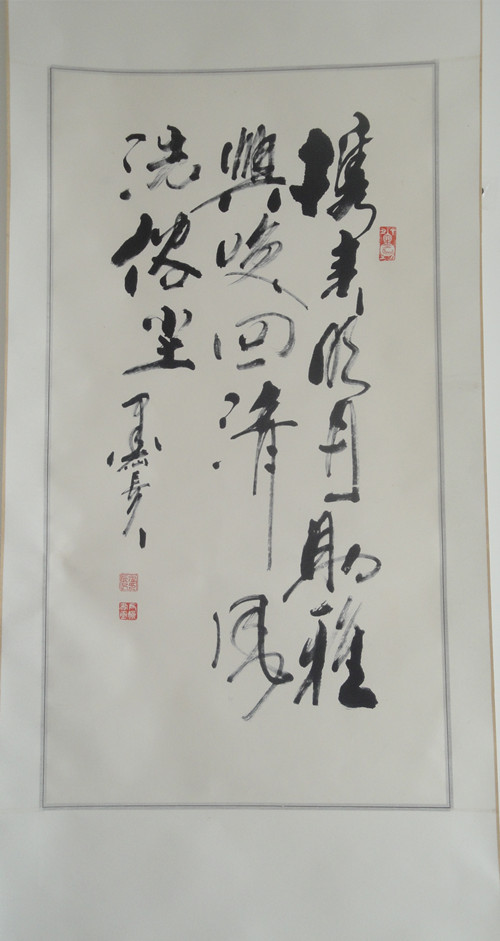 携来明月助雅
兴唤回清风
洗俗尘